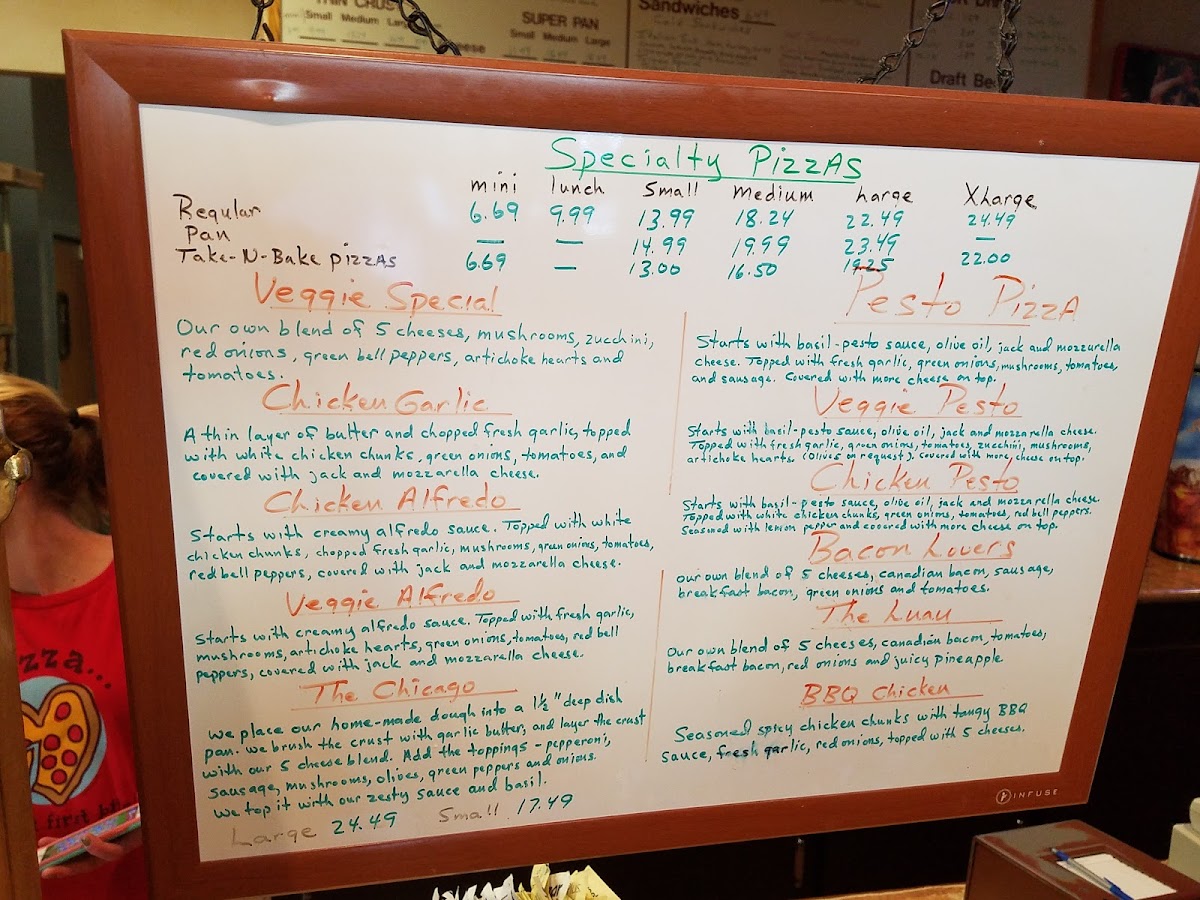 THIN CRUS
Small Medium Large
SUPER PAN
Small Medium Large
Sandwiches
Draft Be
Specialty PizzAs
mini lunch Small Medium Large XLarge
Regular 6.69 9.99 13.99 18.24 22.49 24.49
Pan — — 14.99 19.99 23.49 —
Take-N-Bake pizzAs 6.69 — 13.00 16.50 19.25 22.00
Veggie Special
Our own blend of 5 cheeses, mushrooms, zucchini,
red onions, green bell peppers, artichoke hearts and
tomatoes.
Chicken Garlic
A thin layer of butter and chopped fresh garlic, topped
with white chicken chunks, green onions, tomatoes, and
covered with jack and mozzarella cheese.
Chicken Alfredo
Starts with creamy alfredo sauce. Topped with white
chicken chunks, chopped fresh garlic, mushrooms, green onions, tomatoes,
red bell peppers, covered with jack and mozzarella cheese.
Veggie Alfredo
Starts with creamy alfredo sauce. Topped with fresh garlic,
mushrooms, artichoke hearts, green onions, tomatoes, red bell
peppers, covered with jack and mozzarella cheese.
The Chicago
We place our home-made dough into a 1½" deep dish
pan. We brush the crust with garlic butter, and layer the crust
with our 5 cheese blend. Add the toppings - pepperoni,
sausage, mushrooms, olives, green peppers and onions.
We top it with our zesty sauce and basil.
Large 24.49 Small 17.49
Pesto PizzA
Starts with basil-pesto sauce, olive oil, jack and mozzarella
cheese. Topped with fresh garlic, green onions, mushrooms, tomatoes,
and sausage. Covered with more cheese on top.
Veggie Pesto
Starts with basil-pesto sauce, olive oil, jack and mozzarella cheese.
Topped with fresh garlic, green onions, tomatoes, zucchini, mushrooms,
artichoke hearts. (Olives on request). Covered with more cheese on top.
Chicken Pesto
Starts with basil-pesto sauce, olive oil, jack and mozzarella cheese.
Topped with white chicken chunks, green onions, tomatoes, red bell peppers.
Seasoned with lemon pepper and covered with more cheese on top.
Bacon Lovers
Our own blend of 5 cheeses, canadian bacon, sausage,
breakfast bacon, green onions and tomatoes.
The Luau
Our own blend of 5 cheeses, canadian bacon, tomatoes,
breakfast bacon, red onions and juicy pineapple
BBQ Chicken
Seasoned spicy chicken chunks with tangy BBQ
sauce, fresh garlic, red onions, topped with 5 cheeses.
INFUSE
zza...
first bi